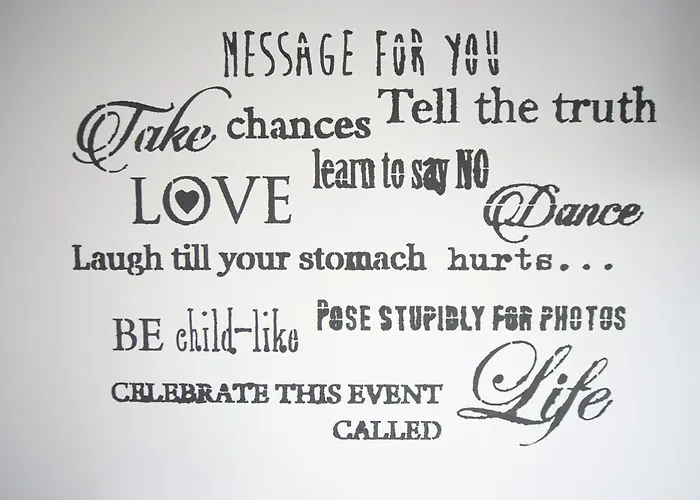 MESSAGE FOR YOU
Take chances Tell the truth
LOVE learn to say NO
Dance
Laugh till your stomach hurts...
BE child-like POSE STUPIDLY FOR PHOTOS
CELEBRATE THIS EVENT
CALLED Life